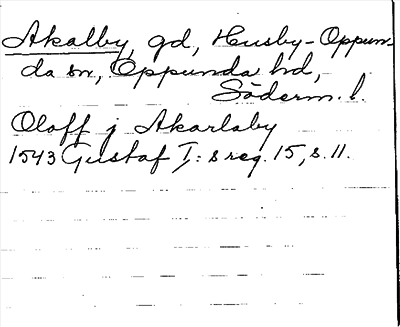 Akalby, gd, Husby-Oppun-
da sn, Oppunda hd,
Söderm. l.
Oloff j Akarlaby
1543 Gustaf I:s reg. 15, s. 11.